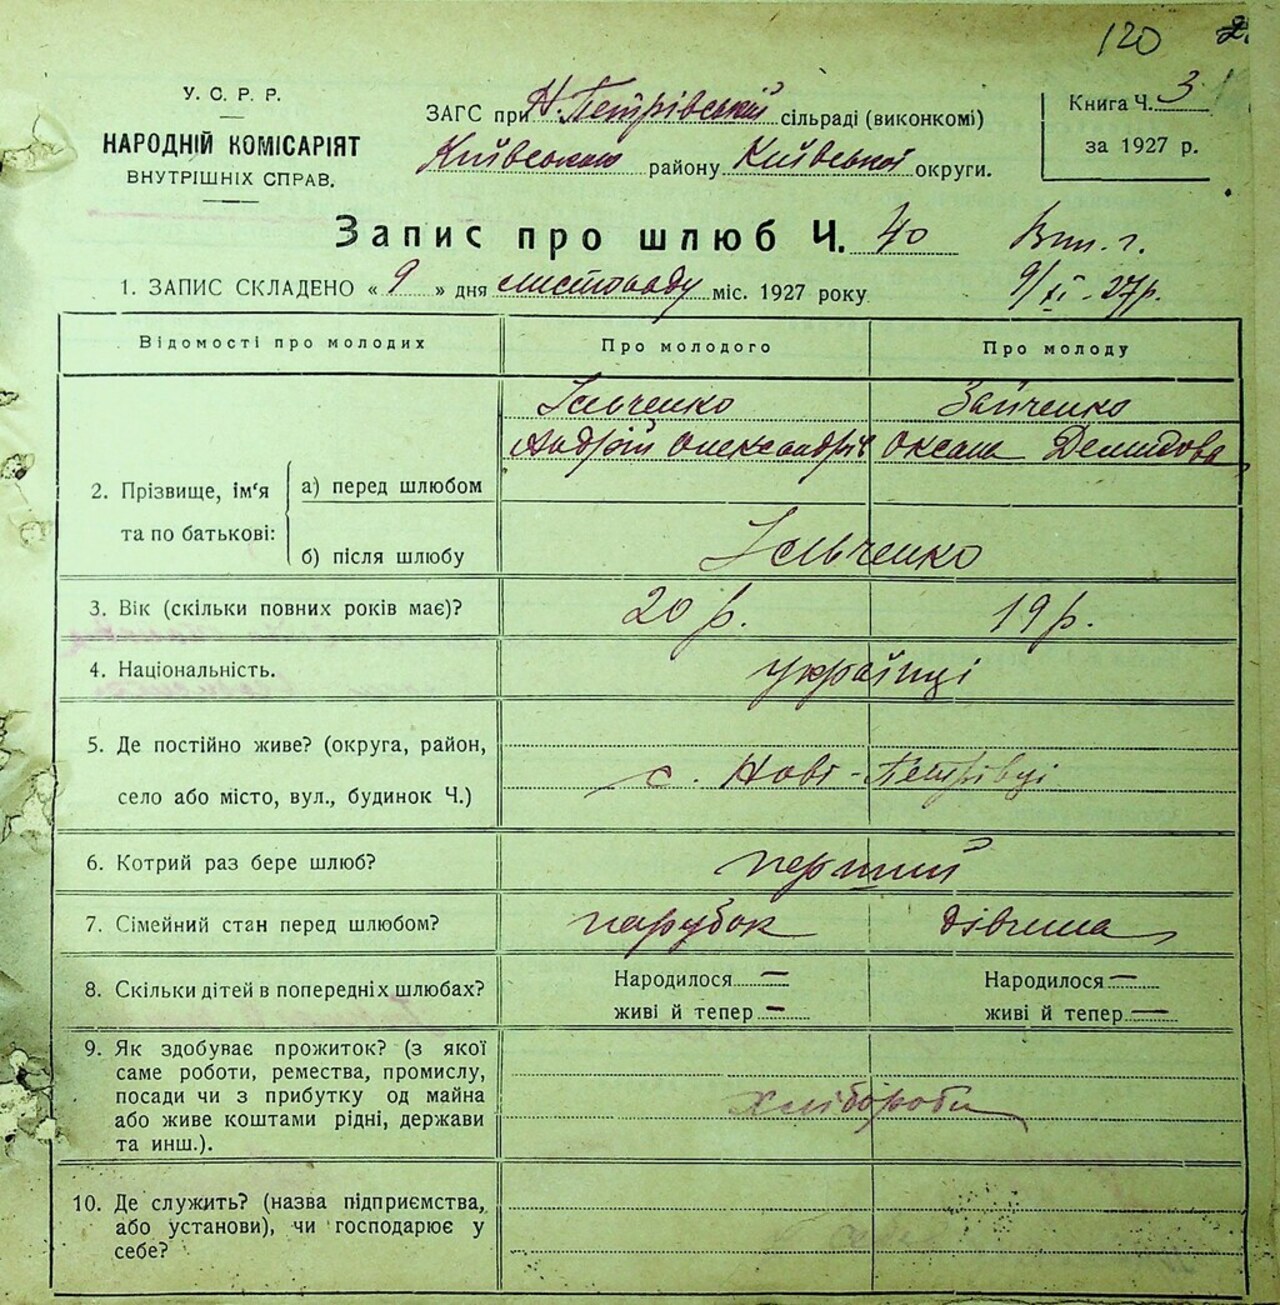 120
У. С. Р. Р.
НАРОДНІЙ КОМІСАРІЯТ
ВНУТРІШНІХ СПРАВ.
ЗАГС при Н. Петрівській сільраді (виконкомі)
Київського району Київської округи.
Книга Ч. 3
за 1927 р.
Запис про шлюб Ч. 40
1. ЗАПИС СКЛАДЕНО « 9 » дня листопаду міс. 1927 року
9/XI - 27р.
Відомості про молодих Про молодого Про молоду
Ільченко Зайченко
Андрій Олександрів Оксана Демидова
2. Прізвище, ім'я та по батькові:
а) перед шлюбом
б) після шлюбу Ільченко
3. Вік (скільки повних років має)? 20 р. 19 р.
4. Національність. українці
5. Де постійно живе? (округа, район,
село або місто, вул., будинок Ч.) с. Нові-Петрівці
6. Котрий раз бере шлюб? перший
7. Сімейний стан перед шлюбом? парубок дівчина
8. Скільки дітей в попередніх шлюбах? Народилося — Народилося —
живі й тепер — живі й тепер —
9. Як здобуває прожиток? (з якої
саме роботи, ремества, промислу,
посади чи з прибутку од майна
або живе коштами рідні, держави
та инш.). хлібороби
10. Де служить? (назва підприємства,
або установи), чи господарює у
себе?